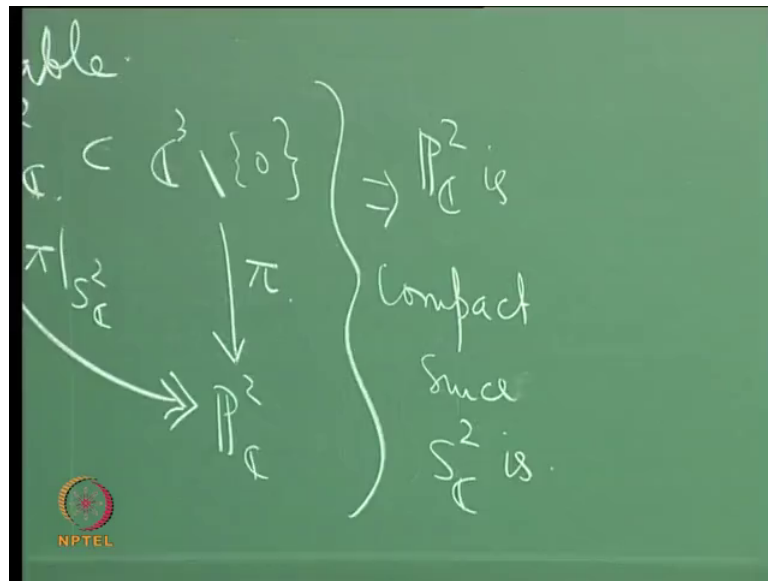 able.
2
ℂ. ⊂ ℂ³ \ {0}
π|S²_ℂ
π.
ℙ²_ℂ
⇒ ℙ²_ℂ is
Compact
since
S²_ℂ is.
NPTEL